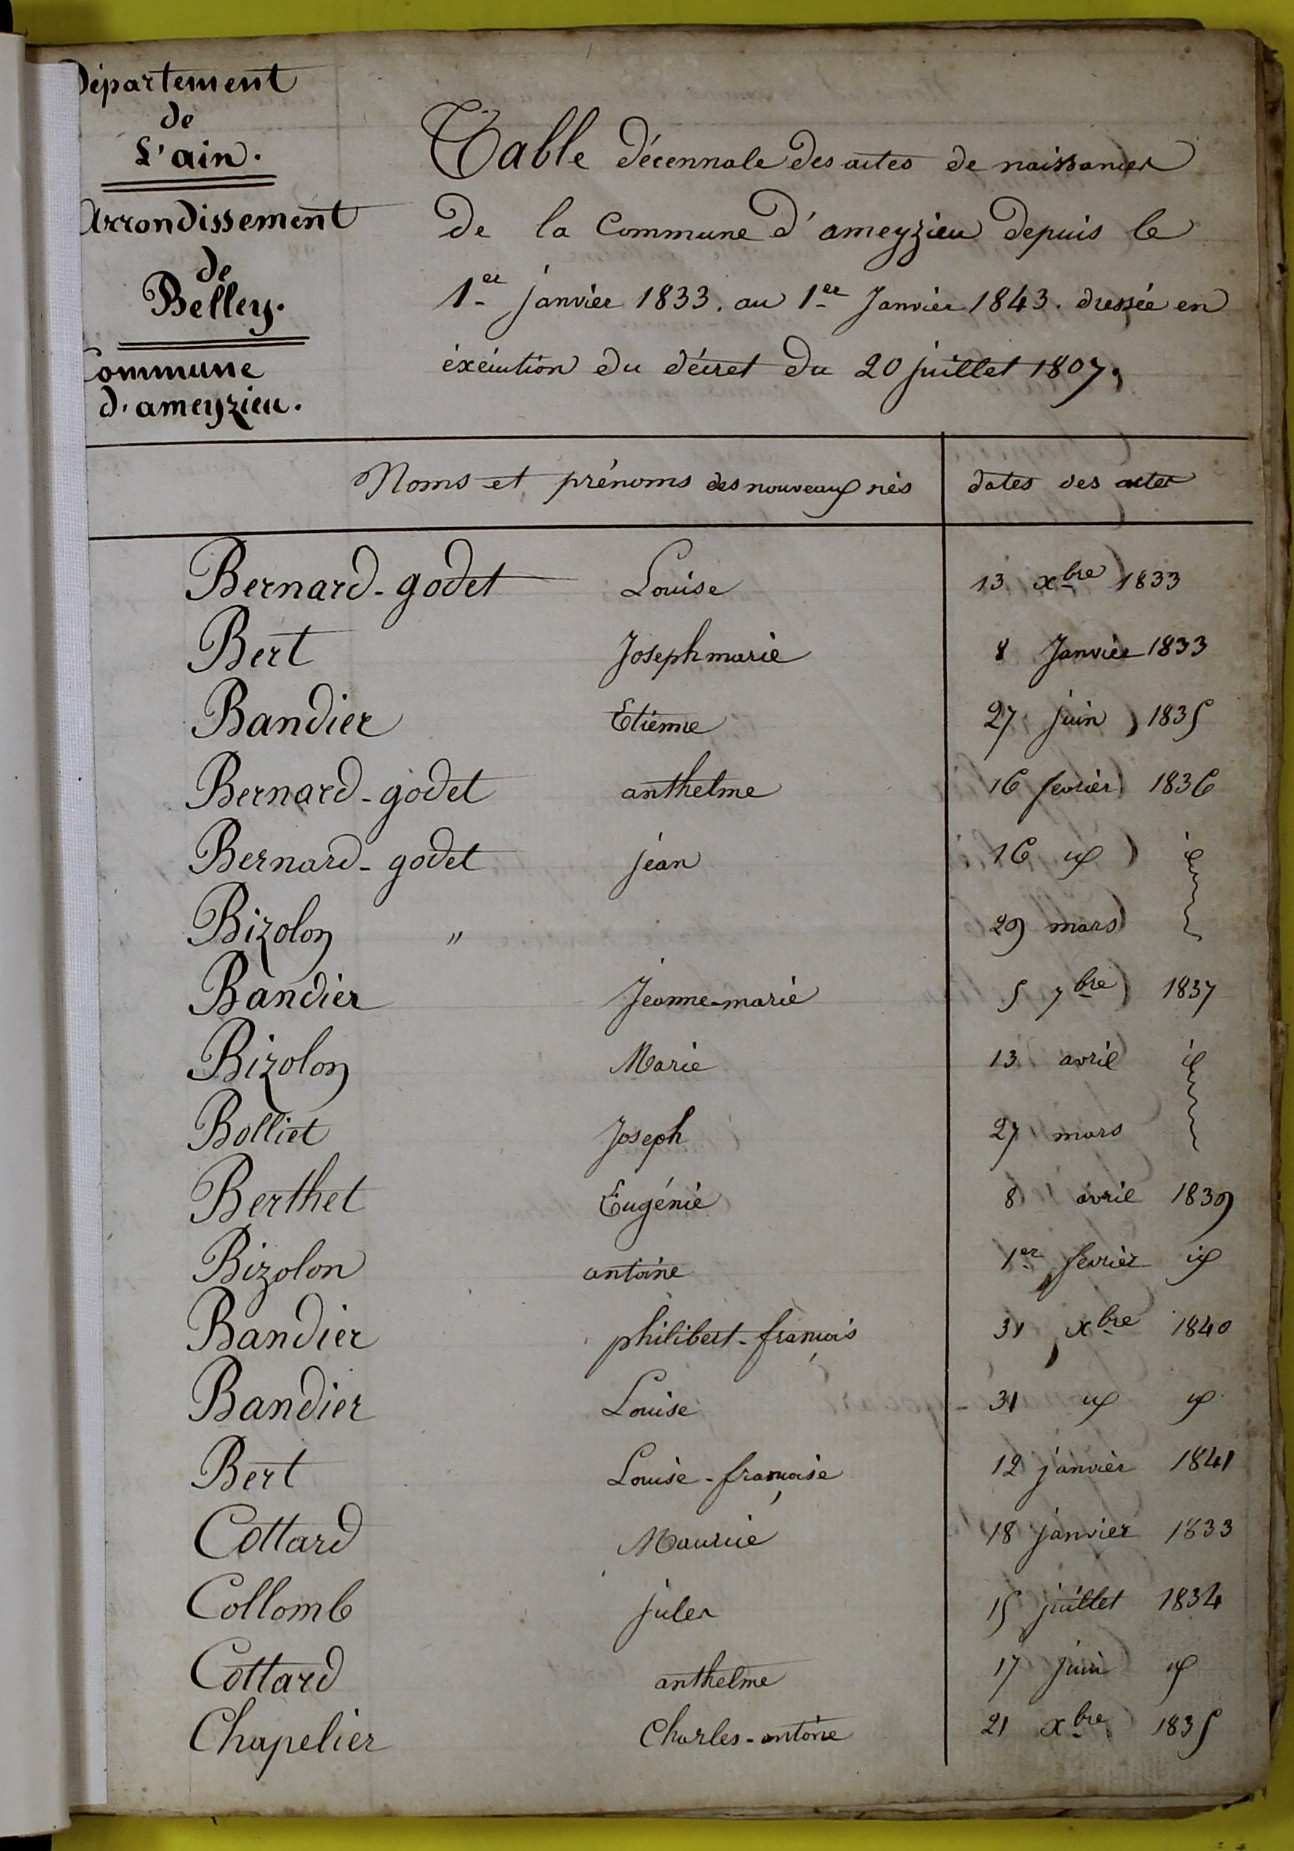 Département
de
L'ain.
Arrondissement
de
Belley.
Commune
d'ameyzieu.
Table décennale des actes de naissances
de la Commune d'ameyzieu depuis le
1er janvier 1833. au 1er Janvier 1843. dressée en
éxécution du décret du 20 juillet 1807,
Noms et prénoms des nouveaux nés dates des actes
Bernard-godet Louise 13 xbre 1833
Bert Joseph marie 8 Janvier 1833
Bandier Etienne 27 juin 1835
Bernard-godet anthelme 16 fevrier 1836
Bernard-godet jéan 16 id id
Bizolon " 29 mars
Bandier Jeanne-marie 5 7bre 1837
Bizolon Marie 13 avril id
Bolliet Joseph 27 mars
Berthet Eugénie 8 avril 1839
Bizolon antoine 1er fevrier id
Bandier philibert-françois 31 xbre 1840
Bandier Louise 31 id id
Bert Louise-françoise 12 janvier 1841
Cottard Maurice 18 janvier 1833
Collomb jules 15 juillet 1834
Cottard anthelme 17 juin id
Chapelier Charles-antoine 21 xbre 1835